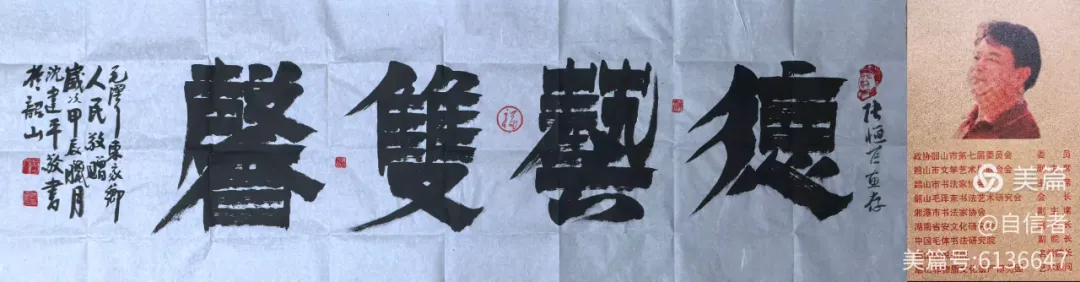 惠存
德藝雙馨
毛澤东家鄉
人民敬赠
歲次甲辰臘月
沈建平敬書
於韶山
政协韶山市第七届委员会 委 员
韶山市文学艺术
韶山市书法家
韶山毛泽东书法艺术研究会 会 长
湘潭市书法家协会 副主席
湖南省安文化研
中国毛体书法研究院 副院长
美篇
@自信者
美篇号:6136647